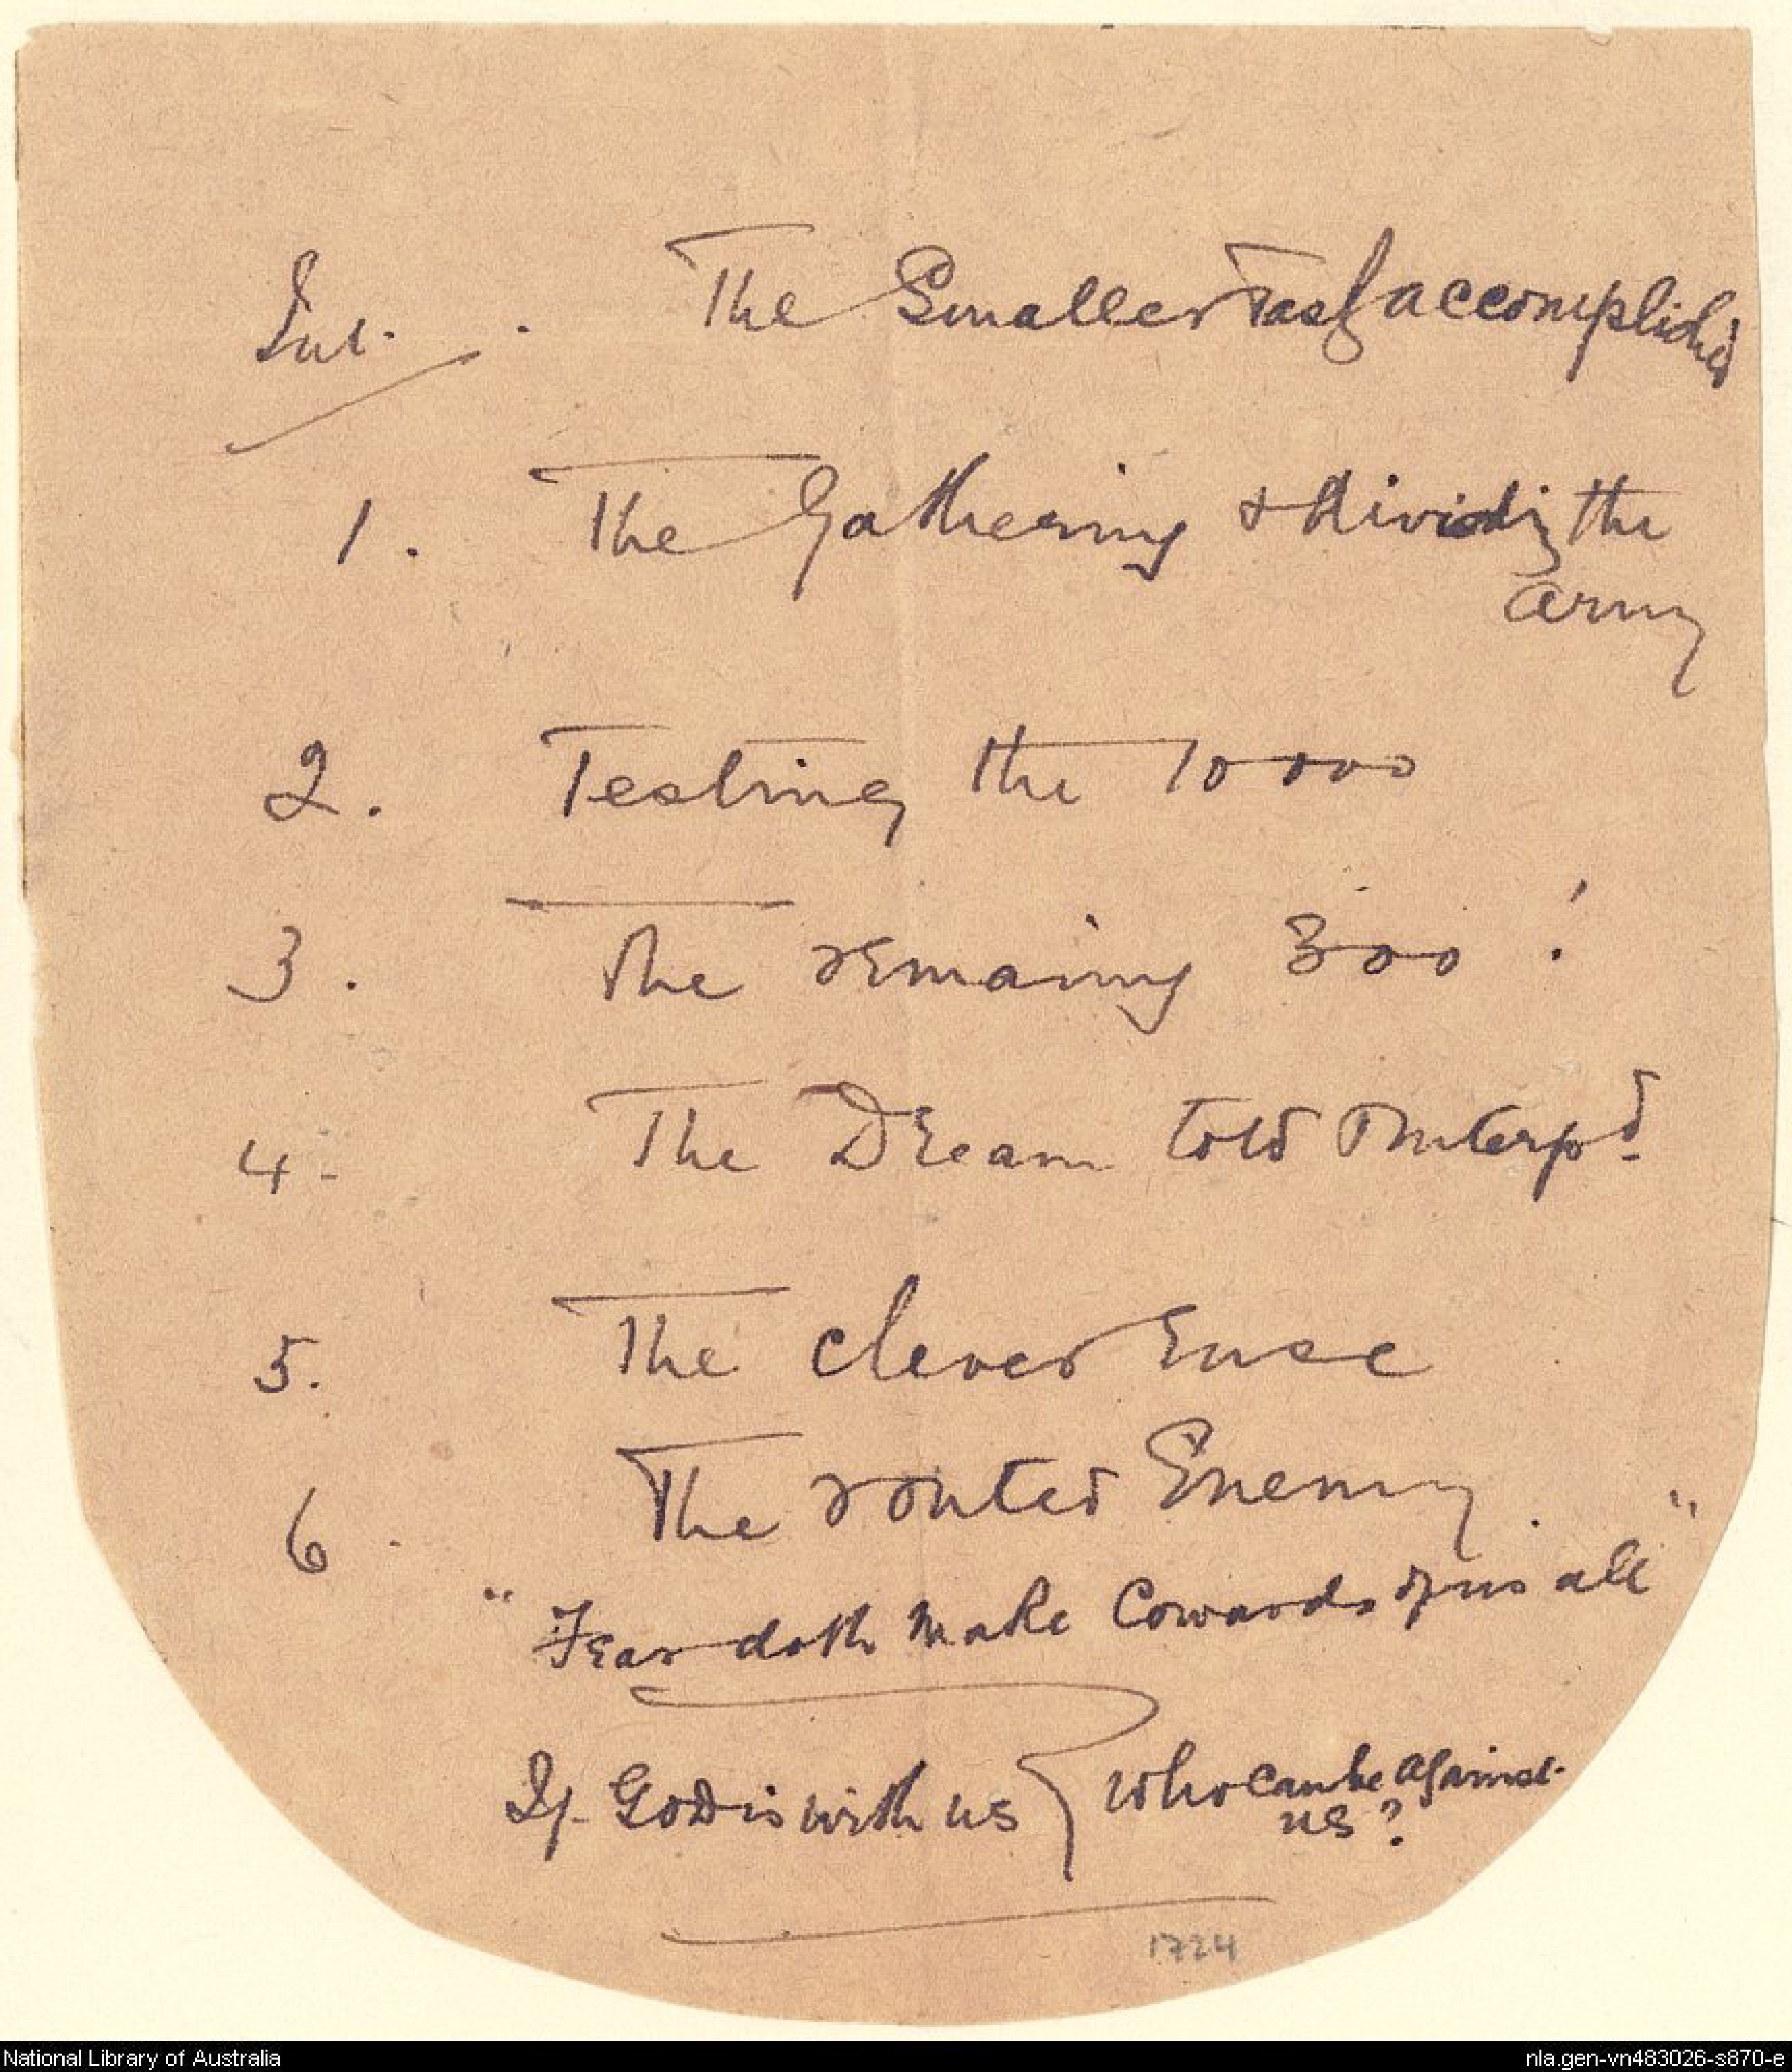 Int. . The Smaller Task accomplished
1. The Gathering & dividing the
army
2. Testing the 10000
3. The remaining 300!
4. The Dream told & Interpd.
5. The clever ruse
6. The routed Enemy.
"Fear doth make Cowards of us all"
If God is with us } Who can be against
us?
1724
National Library of Australia
nla.gen-vn483026-s870-e